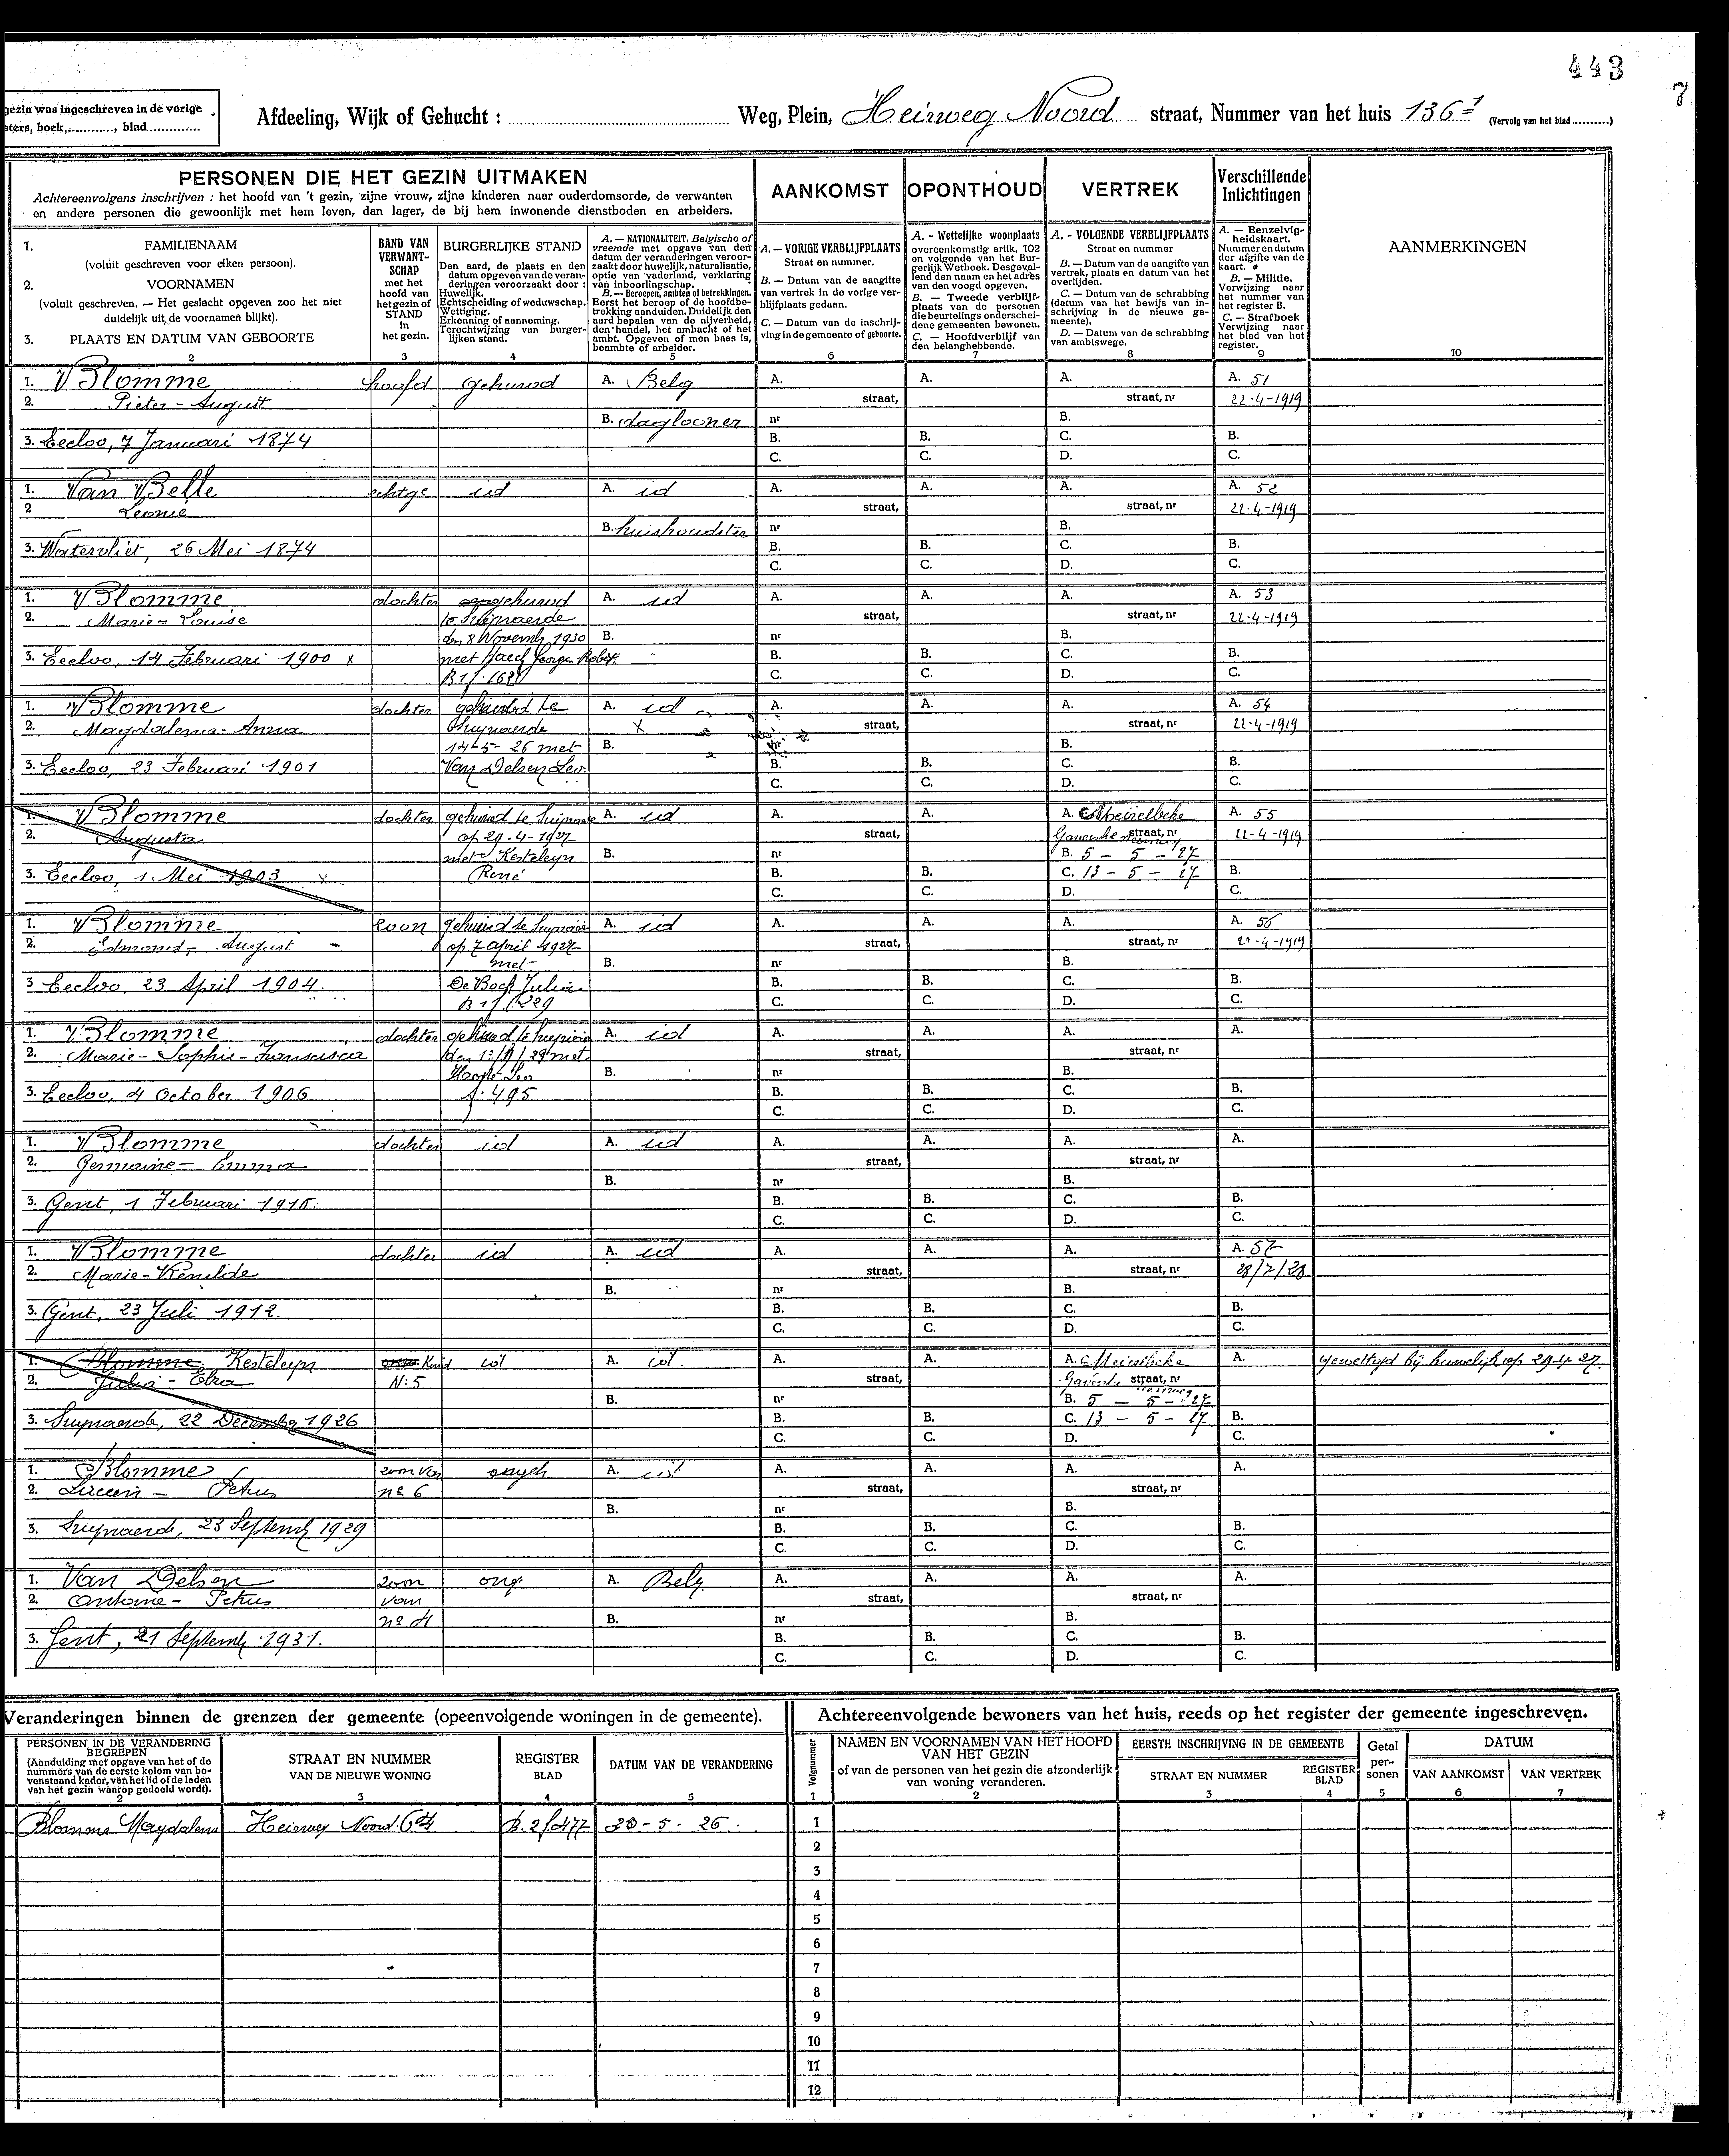 443
7
gezin was ingeschreven in de vorige
sters, boek............, blad..............
Afdeeling, Wijk of Gehucht : .................... Weg, Plein, Heirweg Noord straat, Nummer van het huis 136 (Vervolg van het blad ..........)
PERSONEN DIE HET GEZIN UITMAKEN
Achtereenvolgens inschrijven : het hoofd van 't gezin, zijne vrouw, zijne kinderen naar ouderdomsorde, de verwanten
en andere personen die gewoonlijk met hem leven, dan lager, de bij hem inwonende dienstboden en arbeiders.
AANKOMST OPONTHOUD VERTREK Verschillende Inlichtingen
1. FAMILIENAAM
(voluit geschreven voor elken persoon).
2. VOORNAMEN
(voluit geschreven. — Het geslacht opgeven zoo het niet
duidelijk uit de voornamen blijkt).
3. PLAATS EN DATUM VAN GEBOORTE
2
BAND VAN
VERWANT-
SCHAP
met het
hoofd van
het gezin of
STAND
in
het gezin.
3
BURGERLIJKE STAND
Den aard, de plaats en den
datum opgeven van de veran-
deringen veroorzaakt door :
Huwelijk.
Echtscheiding of weduwschap.
Wettiging.
Erkenning of aanneming.
Terechtwijzing van burger-
lijken stand.
4
A. — NATIONALITEIT. Belgische of
vreemde met opgave van den
datum der veranderingen veroor-
zaakt door huwelijk, naturalisatie,
optie van vaderland, verklaring
van inboorlingschap.
B. — Beroepen, ambten of betrekkingen.
Eerst het beroep of de hoofdbe-
trekking aanduiden. Duidelijk den
aard bepalen van de nijverheid,
den handel, het ambacht of het
ambt. Opgeven of men baas is,
beambte of arbeider.
5
A. — VORIGE VERBLIJFPLAATS
Straat en nummer.
B. — Datum van de aangifte
van vertrek in de vorige ver-
blijfplaats gedaan.
C. — Datum van de inschrij-
ving in de gemeente of geboorte.
6
A. - Wettelijke woonplaats
overeenkomstig artik. 102
en volgende van het Bur-
gerlijk Wetboek. Desgeval-
lend den naam en het adres
van den voogd opgeven.
B. — Tweede verblijf-
plaats van de personen
die beurtelings onderschei-
dene gemeenten bewonen.
C. — Hoofdverblijf van
den belanghebbende.
7
A. - VOLGENDE VERBLIJFPLAATS
Straat en nummer
B. — Datum van de aangifte van
vertrek, plaats en datum van het
overlijden.
C. — Datum van de schrabbing
(datum van het bewijs van in-
schrijving in de nieuwe ge-
meente).
D. — Datum van de schrabbing
van ambtswege.
8
A. — Eenzelvig-
heidskaart.
Nummer en datum
der afgifte van de
kaart.
B. — Militie.
Verwijzing naar
het nummer van
het register B.
C. — Strafboek
Verwijzing naar
het blad van het
register.
9
AANMERKINGEN
10
1. Blomme hoofd gehuwd A. Belg A. A. A. A. 51
2. Pieter - August straat, straat, nr 22-4-1919
B. daglooner nr B.
3. Eecloo, 7 Januari 1874 B. B. C. B.
C. C. D. C.
1. Van Belle echtge id A. id A. A. A. A. 52
2 Leonie straat, straat, nr 22-4-1919
B. huishoudster nr B.
3. Watervliet, 26 Mei 1874 B. B. C. B.
C. C. D. C.
1. Blomme dochter gehuwd A. id A. A. A. A. 53
2. Marie - Louise straat, straat, nr 22-4-1919
den 8 Novemb 1930 B. nr B.
3. Eecloo, 14 Februari 1900 x met Georges B. B. C. B.
C. C. D. C.
1. Blomme dochter gehuwd te A. id A. A. A. A. 54
2. Magdalena - Anna x straat, straat, nr 22-4-1919
14-5-26 met B. B.
3. Eecloo, 23 Februari 1901 Van Delsen Leo B. B. C. B.
C. C. D. C.
1. Blomme dochter gehuwd te A. id A. A. A. Meirelbeke A. 55
2. Augusta op 29-4-1927 straat, straat, nr 22-4-1919
met Kesteleyn B. nr B. 5 - 5 - 27
3. Eecloo, 1 Mei 1903 x René B. B. C. 13 - 5 - 27 B.
C. C. D. C.
1. Blomme zoon gehuwd te A. id A. A. A. A. 56
2. Edmond - August op 7 april 1927 straat, straat, nr 22-4-1919
met B. nr B.
3 Eecloo, 23 April 1904. B. B. C. B.
C. C. D. C.
1. Blomme dochter gehuwd te A. id A. A. A. A.
2. Marie - Sophie - Francisca met straat, straat, nr
B. nr B.
3. Eecloo, 4 October 1906 f. 495 B. B. C. B.
C. C. D. C.
1. Blomme dochter id A. id A. A. A. A.
2. Germaine - Emma straat, straat, nr
B. nr B.
3. Gent, 1 Februari B. B. C. B.
C. C. D. C.
1. Blomme dochter id A. id A. A. A. A. 57
2. Marie - straat, straat, nr 28/7/28
B. nr B.
3. Gent, 23 Juli 1912. B. B. C. B.
C. C. D. C.
1. Blomme Kesteleyn Kind id A. id. A. A. A. Meirelbeke A. gewettigd bij huwelijk op 29-4-27.
2. Julia - Elza N: 5 straat, straat, nr
B. nr B. 5 - 5 - 27
3. Suynaerde, 22 December 1926 B. B. C. 13 - 5 - 27 B.
C. C. D. C.
1. Blomme zoon van ongeh A. id A. A. A. A.
2. Lucien - Petrus nº 6 straat, straat, nr
B. nr B.
3. Suynaerde, 23 Septemb 1929 B. B. C. B.
C. C. D. C.
1. Van Delsen zoon ong. A. Belg. A. A. A. A.
2. Antoine - Petrus van straat, straat, nr
nº 4 B. nr B.
3. Gent, 21 Septemb. 1931. B. B. C. B.
C. C. D. C.
Veranderingen binnen de grenzen der gemeente (opeenvolgende woningen in de gemeente).
PERSONEN IN DE VERANDERING
BEGREPEN
(Aanduiding met opgave van het of de
nummers van de eerste kolom van bo-
venstaand kader, van het lid of de leden
van het gezin waarop gedoeld wordt).
2
STRAAT EN NUMMER
VAN DE NIEUWE WONING
3
REGISTER
BLAD
4
DATUM VAN DE VERANDERING
5
Blomme Magdalena Heirweg Noord B. 2 f 477 30-5-26.
Achtereenvolgende bewoners van het huis, reeds op het register der gemeente ingeschreven.
Volgnummer
1
NAMEN EN VOORNAMEN VAN HET HOOFD
VAN HET GEZIN
of van de personen van het gezin die afzonderlijk
van woning veranderen.
2
EERSTE INSCHRIJVING IN DE GEMEENTE
STRAAT EN NUMMER
3
REGISTER
BLAD
4
Getal
per-
sonen
5
DATUM
VAN AANKOMST
6
VAN VERTREK
7
1
2
3
4
5
6
7
8
9
10
11
12